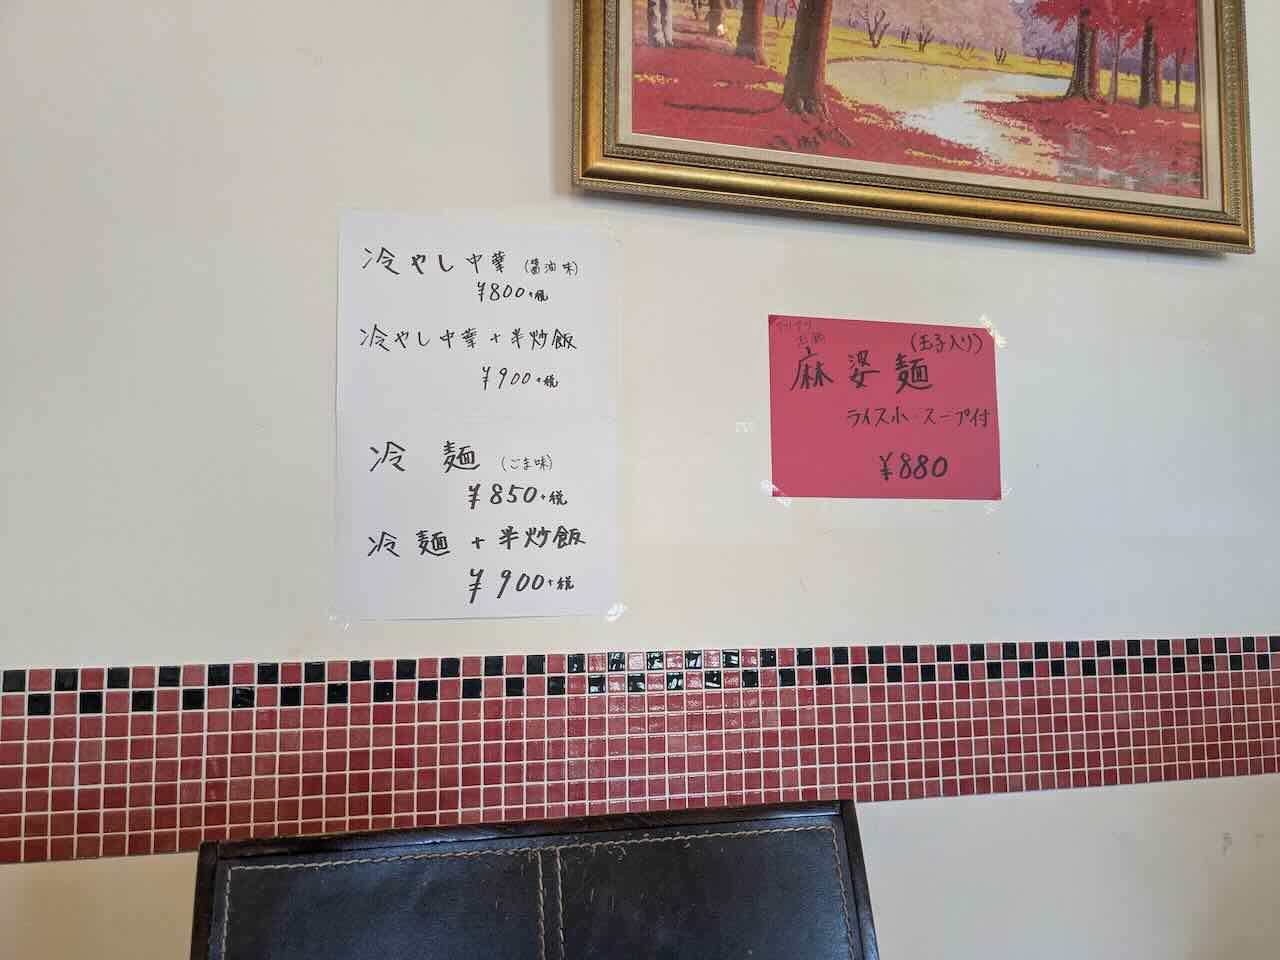 冷やし中華 (醤油味)
¥800+税
冷やし中華+半炒飯
¥900+税
冷麺 (ごま味)
¥850+税
冷麺+半炒飯
¥900+税
(玉子入り)
麻婆麺
ライス小・スープ付
¥880